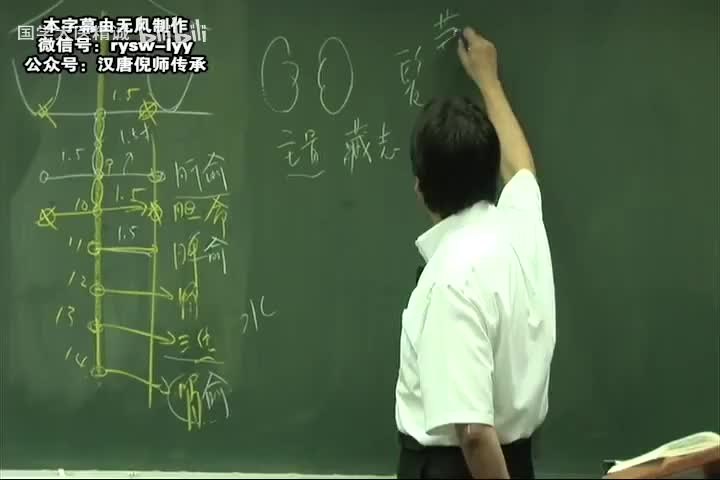 国学大医精诚 bilibili
本字幕由无风制作
微信号：rysw-lyy
公众号：汉唐倪师传承
1.5
1.5寸
1.5
9
肝俞
10
1.5
胆俞
11
1.5
脾俞
12
胃
13
三焦
14
肾俞
水
主骨 藏志
髮